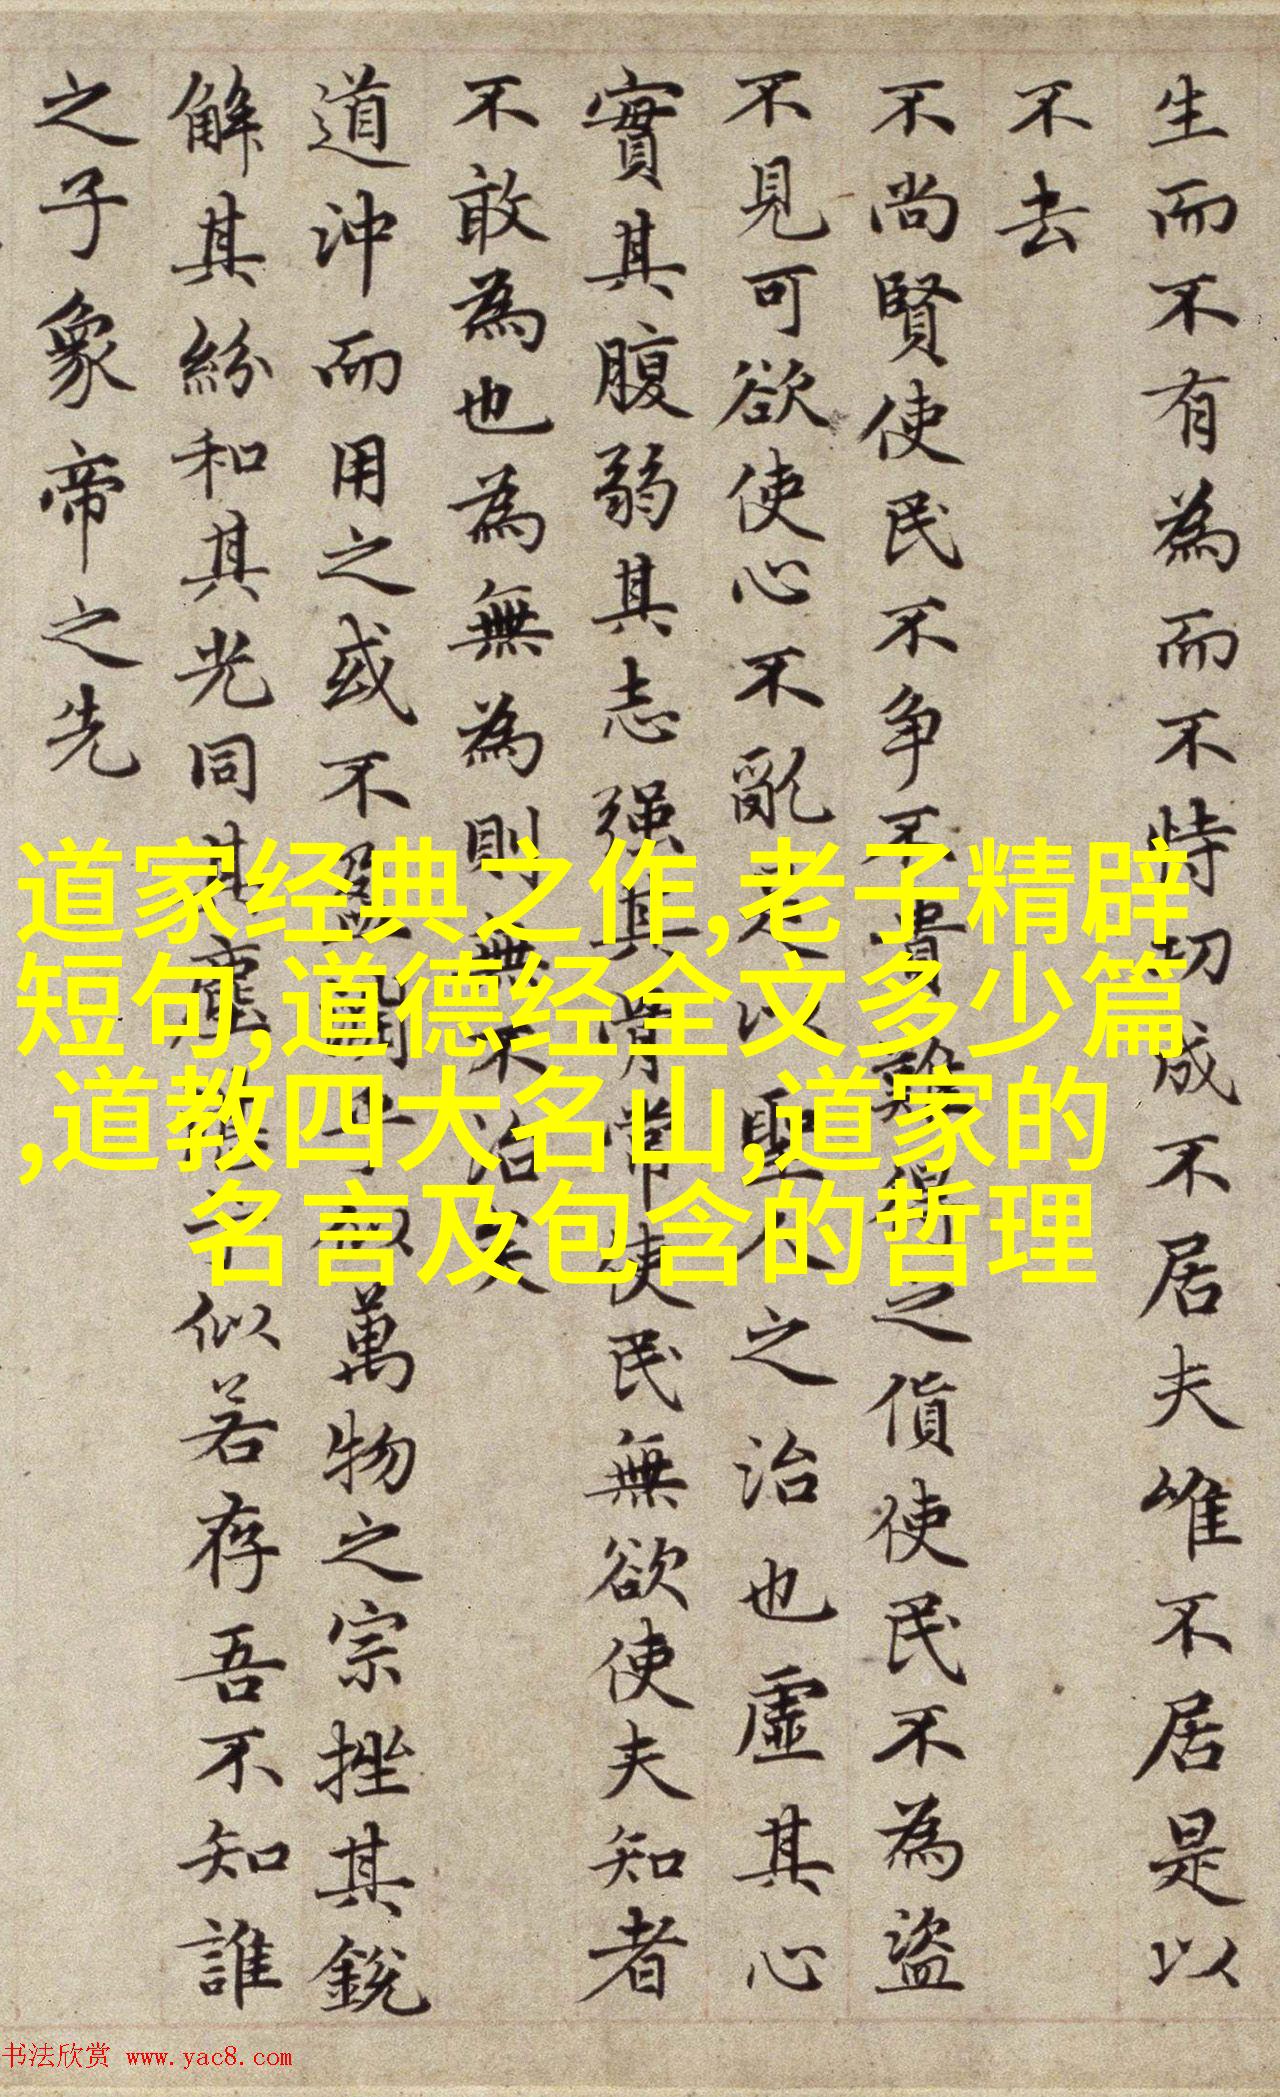 生而不有為而不恃功成不居夫唯不居是以
不去
不尚賢使民不争不貴難得之貨使民不為盜
不見可欲使心不亂是以聖人之治也虛其心
實其腹弱其志强其骨常使民無欲使夫知者
不敢為也為無為則無不治矣
道沖而用之或不盈淵乎似萬物之宗挫其銳
解其紛和其光同其塵湛兮似若存吾不知誰
之子象帝之先
道家经典之作,老子精辟
短句,道德经全文多少篇
,道教四大名山,道家的
名言及包含的哲理
书法欣赏 www.yac8.com